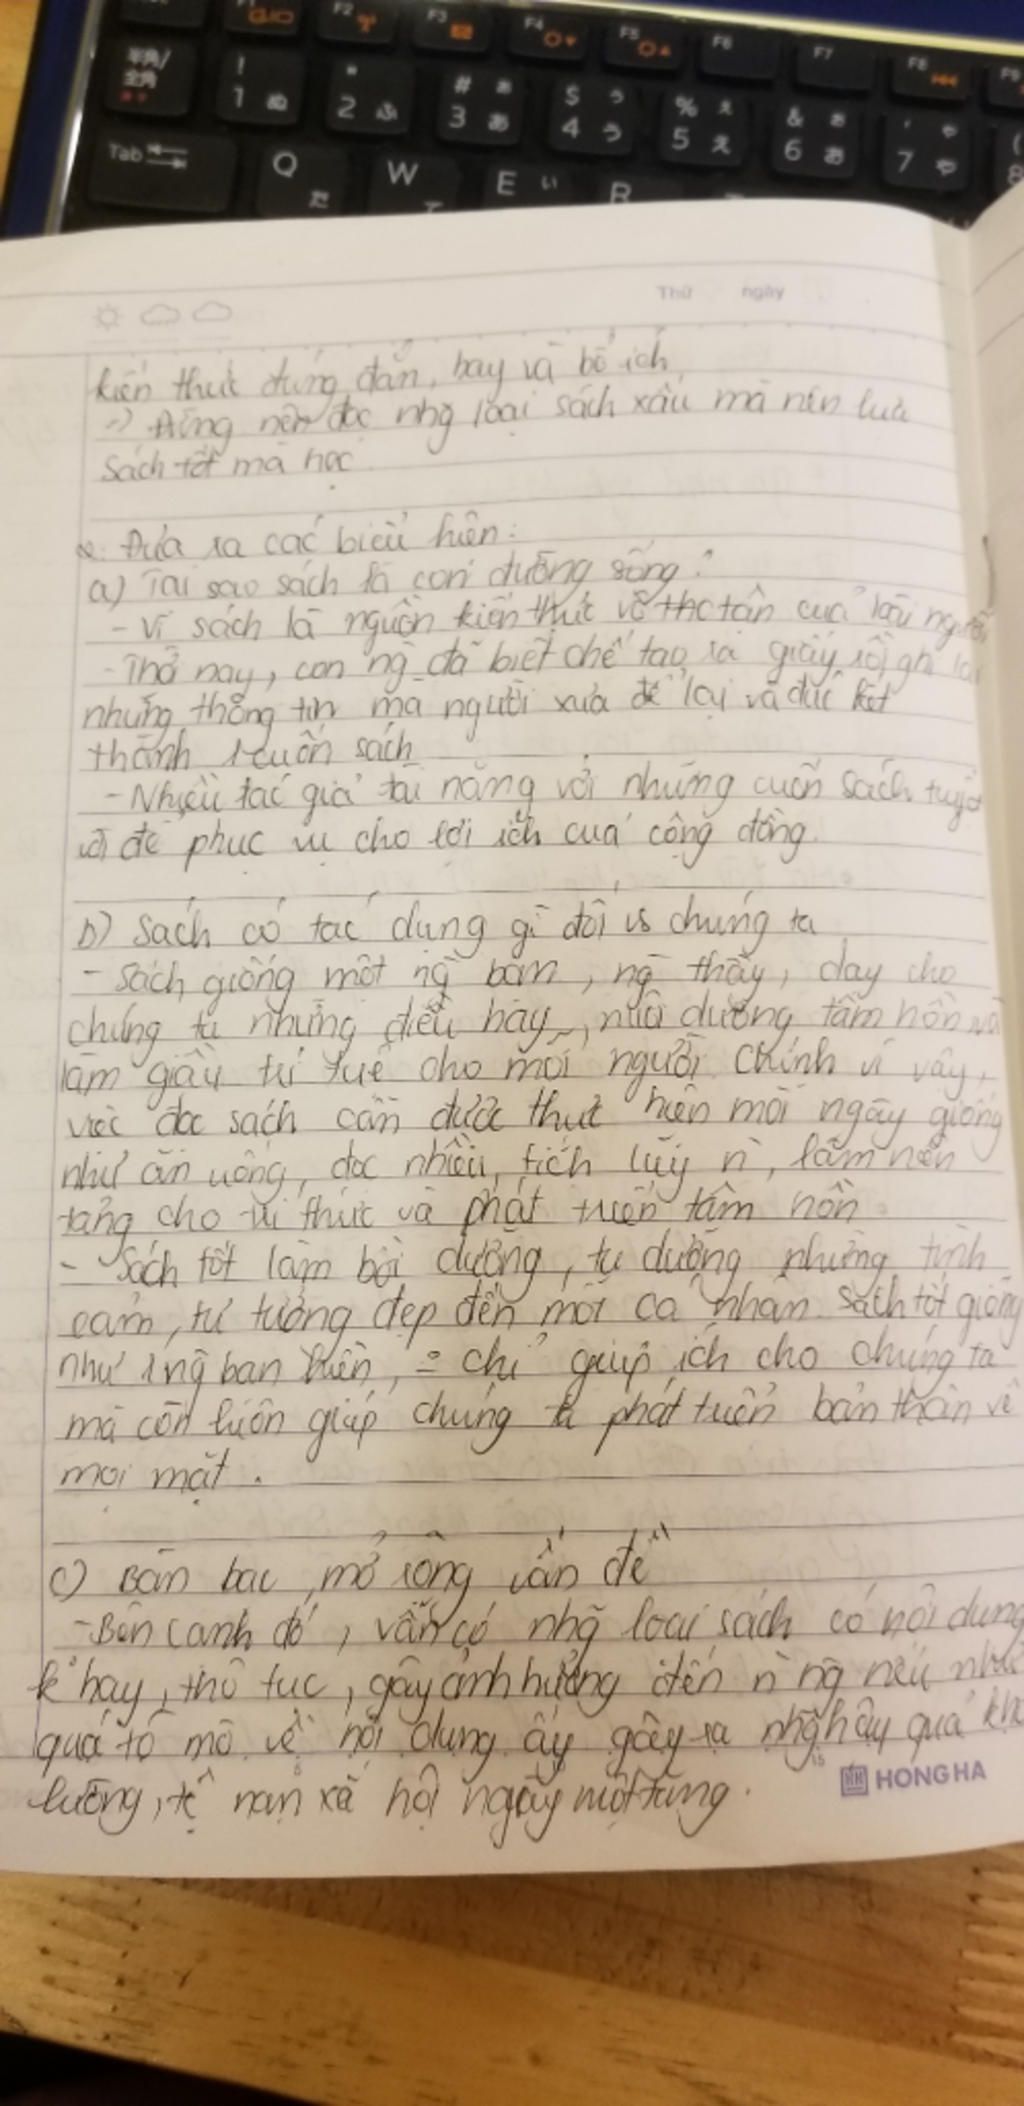 F1 F2 F3 F4 F5 F6 F7 F8 F9
半角/ ! " # ぁ $ ぅ % ぇ & ぉ ' ゃ (
全角 1 ぬ 2 ふ 3 あ 4 う 5 え 6 お 7 や 8
Tab Q た W て E い R
Thứ ngày
kiến thức đúng đắn, hay và bổ ích
=> Đừng nên đọc nhg loại sách xấu mà nên lựa
sách tốt mà học
2. Đưa ra các biểu hiện:
a) Tại sao sách là con đường sống?
- Vì sách là nguồn kiến thức vô tận của loài người
- Thở nay, con ng đã biết chế tạo ra giấy rồi ghi lại
những thông tin mà người xưa để lại và đúc kết
thành 1 cuốn sách
- Nhiều tác giả tài năng với những cuốn sách tuyệt
vời để phục vụ cho lợi ích của cộng đồng.
b) Sách có tác dụng gì đối vs chúng ta
- Sách giống một ng bạn, ng thầy, dạy cho
chúng ta những điều hay, nuôi dưỡng tâm hồn và
làm giầu trí tuệ cho mỗi người. Chính vì vậy,
việc đọc sách cần được thực hiện mỗi ngày giống
như ăn uống, đọc nhiều, tích lũy n`, làm nền
tảng cho tri thức và phát triển tâm hồn
- Sách tốt làm bồi dưỡng, tu dưỡng những tình
cảm, tư tưởng đẹp đến mỗi cá nhân. Sách tốt giống
như 1 ng bạn hiền, chỉ giúp ích cho chúng ta
mà còn luôn giúp chúng ta phát triển bản thân về
mọi mặt.
c) Bàn bạc, mở rộng vấn đề
- Bên cạnh đó, vẫn có nhg loại sách có nội dung
k hay, thô tục, gây ảnh hưởng đến n` ng nếu như
quá tò mò về nội dung ấy gây ra nhg hậy quả khó
lường, tệ nạn xã hội ngày một tăng.
HONG HA